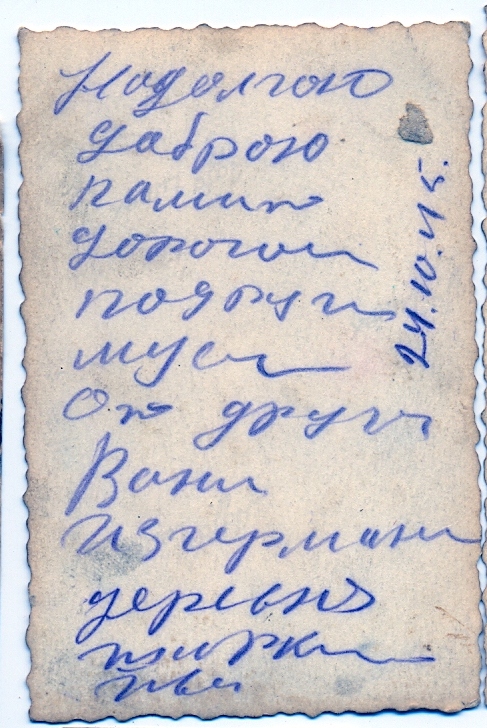 Надолгою
даброю
памить
дорогои
подруги
муси
От друга
Вани
Изгермани
деревня
24.10.45.